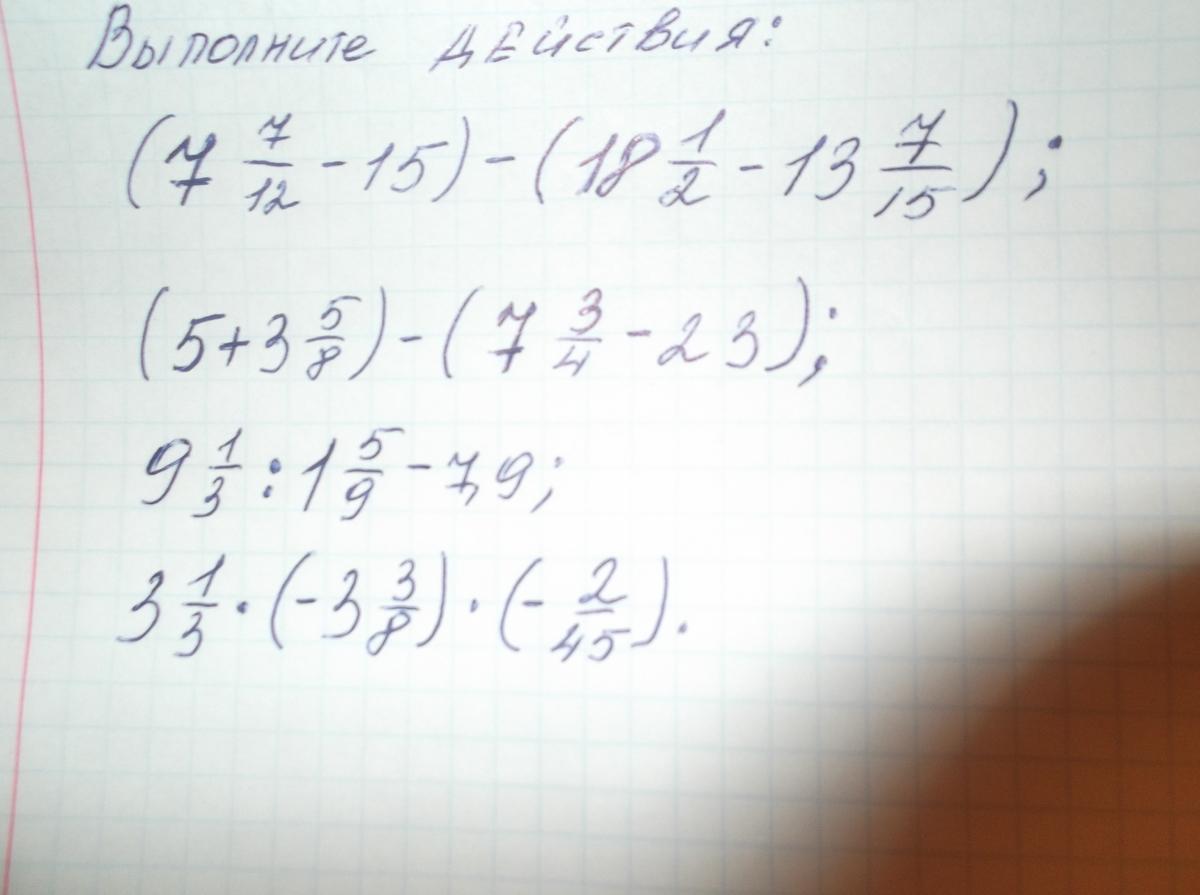 Выполните действия:
(7 7/12 - 15) - (18 1/2 - 13 7/15);
(5 + 3 5/8) - (7 3/4 - 23);
9 1/3 : 1 5/9 - 7,9;
3 1/3 · (-3 3/8) · (- 2/45).